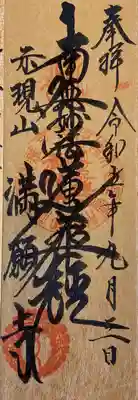 奉拝 令和五年九月二日
南無妙法蓮華経
示現山
満願寺